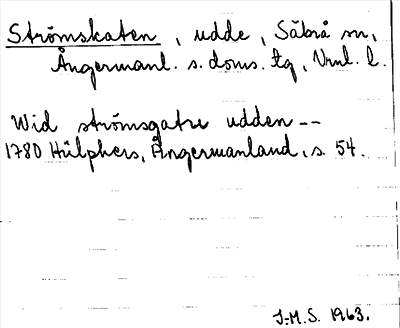 Strömskaten, udde, Säbrå sn,
Ångermanl. s. doms. tg, Vnl. l.
Wid strömsgatu udden --
1780 Hülphers, Ångermanland, s. 54.
J-M.S. 1963.